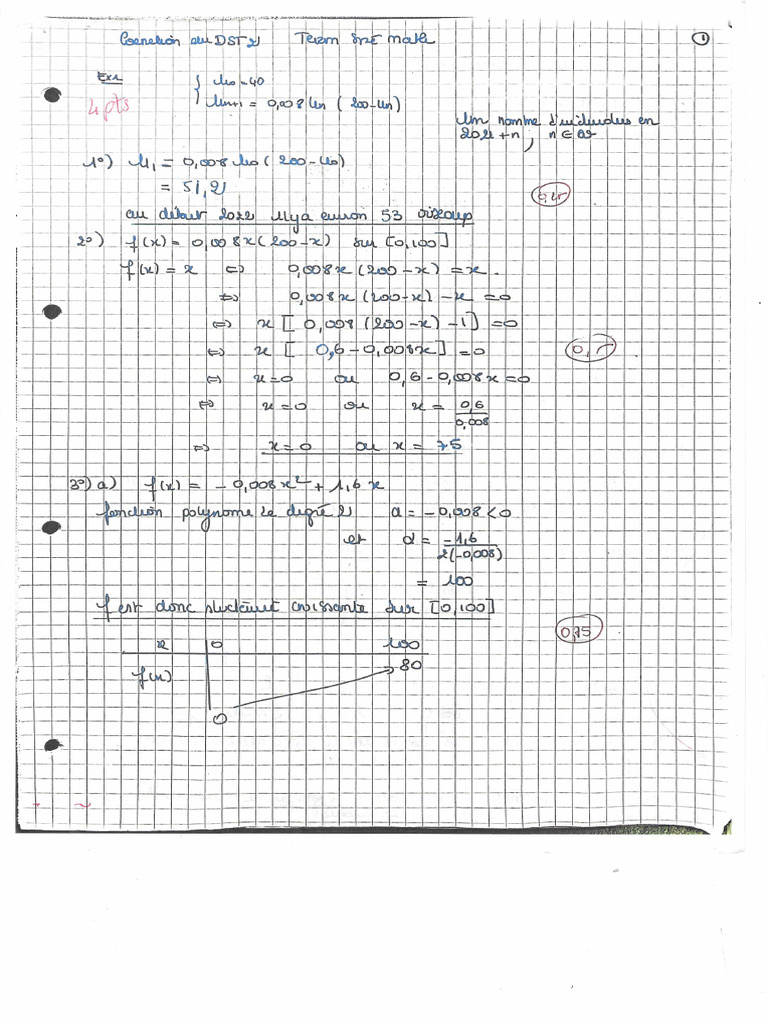 Correction du DST2 Term Spé Math 1
Ex1
4 pts
{ u0 = 40
un+1 = 0,008 un (200-un)
Un nombre d'individus en
2021+n, n ∈ ℕ
1°) u1 = 0,008 u0 (200-u0)
= 51,2
0,25
au début 2022 il y a environ 53 oiseaux
2°) f(x) = 0,008x(200-x) sur [0,100]
f(x) = x ⇔ 0,008x (200-x) = x.
⇔ 0,008x (200-x) - x = 0
⇔ x [ 0,008 (200-x) -1] = 0
⇔ x [ 0,6-0,008x] = 0
0,5
⇔ x=0 ou 0,6-0,008x = 0
⇔ x=0 ou x = 0,6/0,008
⇔ x=0 ou x = 75
3°) a) f(x) = -0,008x² + 1,6x
fonction polynome de degré 2 a = -0,008 < 0
et α = -1,6/2(-0,008)
= 100
f est donc strictement croissante sur [0,100]
0,75
x 0 100
f(x) 80
0